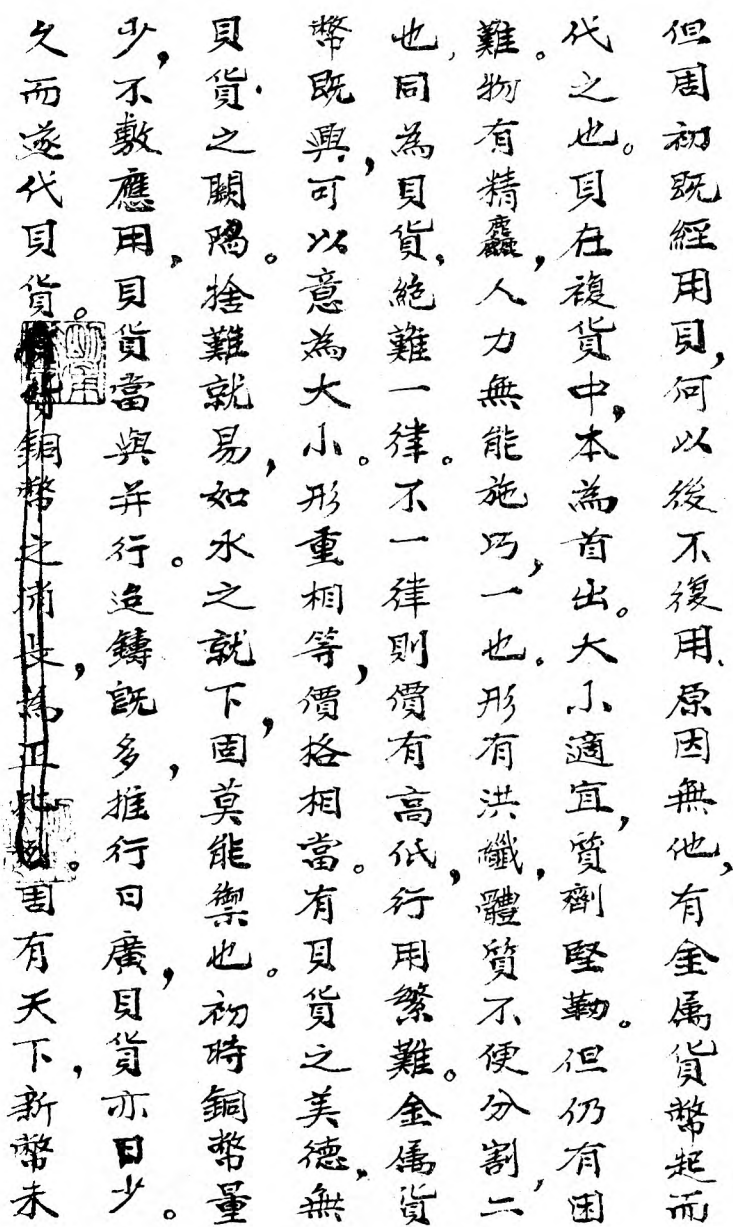 但周初既經用貝，何以後不復用、原因無他，有金属貨幣起而
代之也。貝在複貨中，本為首出。大小適宜，質劑堅勒。但仍有困
難。物有精麤，人力無能施巧，一也。形有洪纖，體質不便分割，二
也，同為貝貨，絕難一律。不一律則價有高低，行用繁難。金属貨
幣既興，可以意為大小。形重相等，價格相當。有貝貨之美德，無
貝貨之闕陷。捨難就易，如水之就下，固莫能禦也。初時銅幣量
少，不敷應用，貝貨當與并行。造鑄既多，推行日廣，貝貨亦日少。
久而遂代貝貨。銅幣之消長，為正比例。周有天下，新幣未